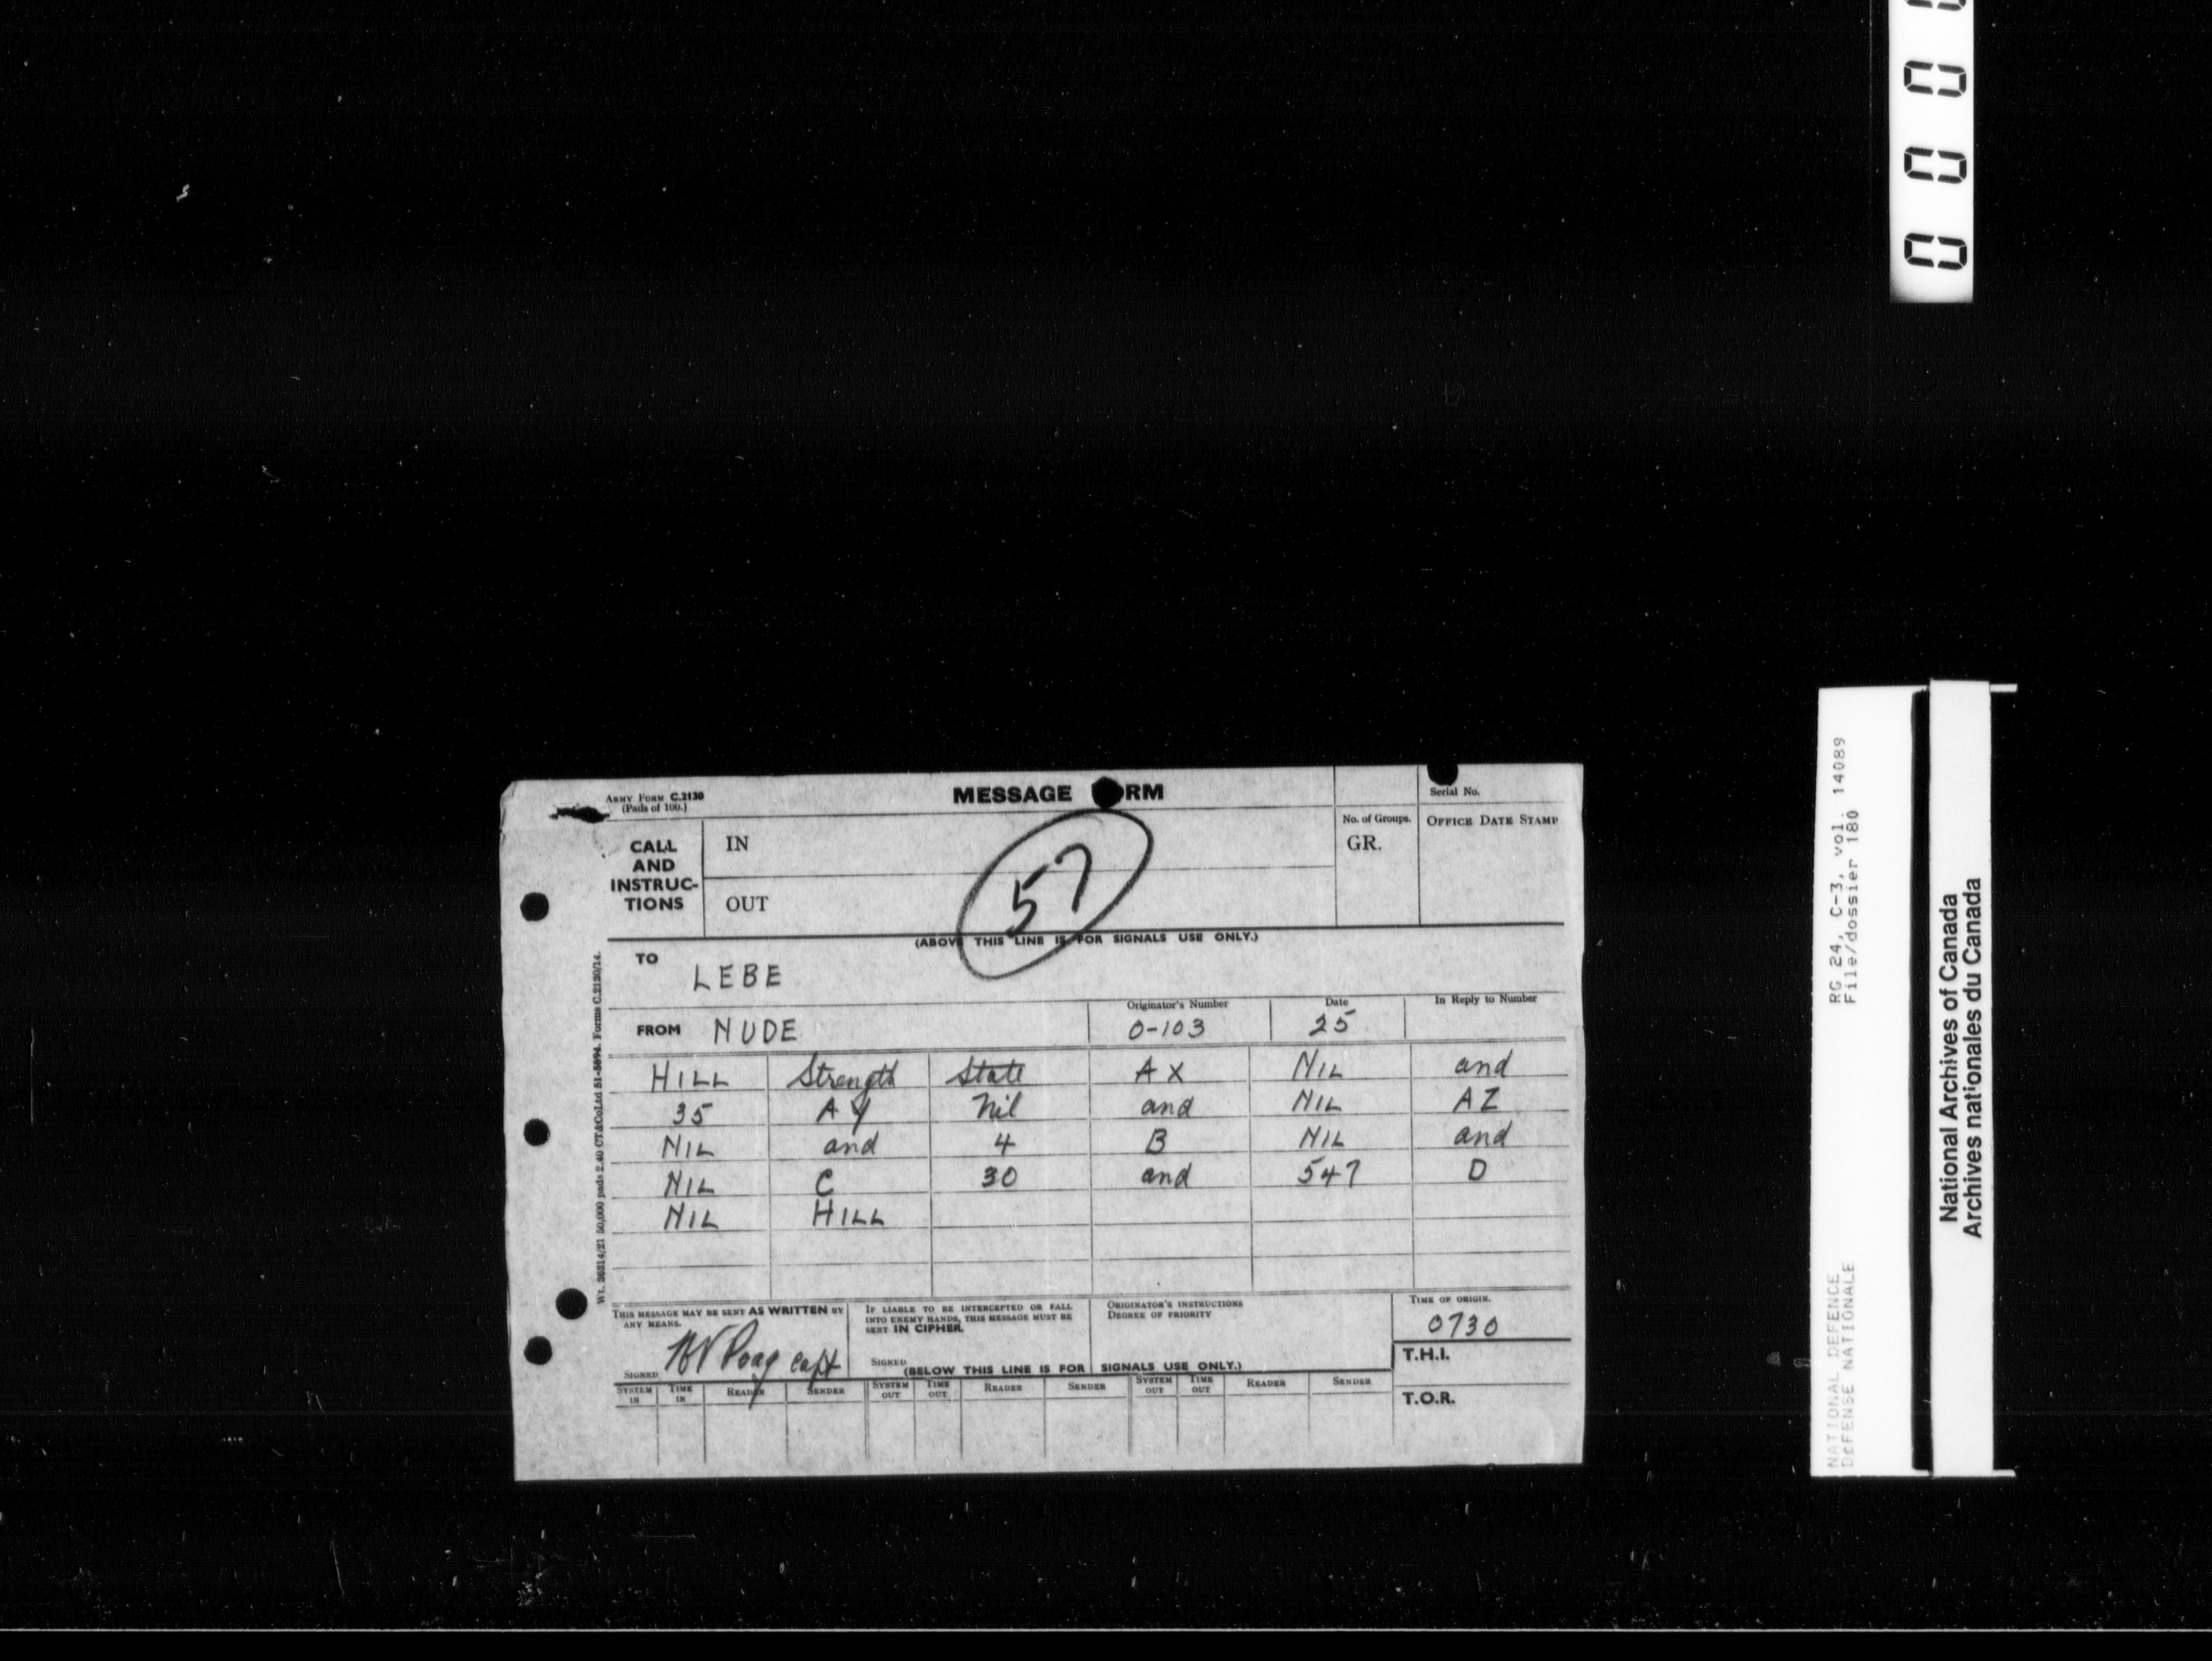 ARMY FORM C.2130
(Pads of 100.)
MESSAGE RM
Serial No.
CALL AND INSTRUC- TIONS
IN
OUT
57
No. of Groups.
GR.
OFFICE DATE STAMP
(ABOVE THIS LINE IS FOR SIGNALS USE ONLY.)
TO LEBE
FROM NUDE
Originator's Number
0-103
Date
25
In Reply to Number
HILL Strength State AX NIL and
35 AY Nil and NIL AZ
NIL and 4 B NIL and
NIL C 30 and 547 D
NIL HILL
THIS MESSAGE MAY BE SENT AS WRITTEN BY
ANY MEANS.
SIGNED capt
IF LIABLE TO BE INTERCEPTED OR FALL
INTO ENEMY HANDS, THIS MESSAGE MUST BE
SENT IN CIPHER.
SIGNED
ORIGINATOR'S INSTRUCTIONS
DEGREE OF PRIORITY
TIME OF ORIGIN.
0730
(BELOW THIS LINE IS FOR SIGNALS USE ONLY.)
T.H.I.
T.O.R.
SYSTEM IN TIME IN READER SENDER SYSTEM OUT TIME OUT READER SENDER SYSTEM OUT TIME OUT READER SENDER
50,000 pads 2.40 Forms C.2130/14.
0 0 0
RG 24, C-3, vol. 14089
File/dossier 180
NATIONAL DEFENCE
DEFENSE NATIONALE
National Archives of Canada
Archives nationales du Canada